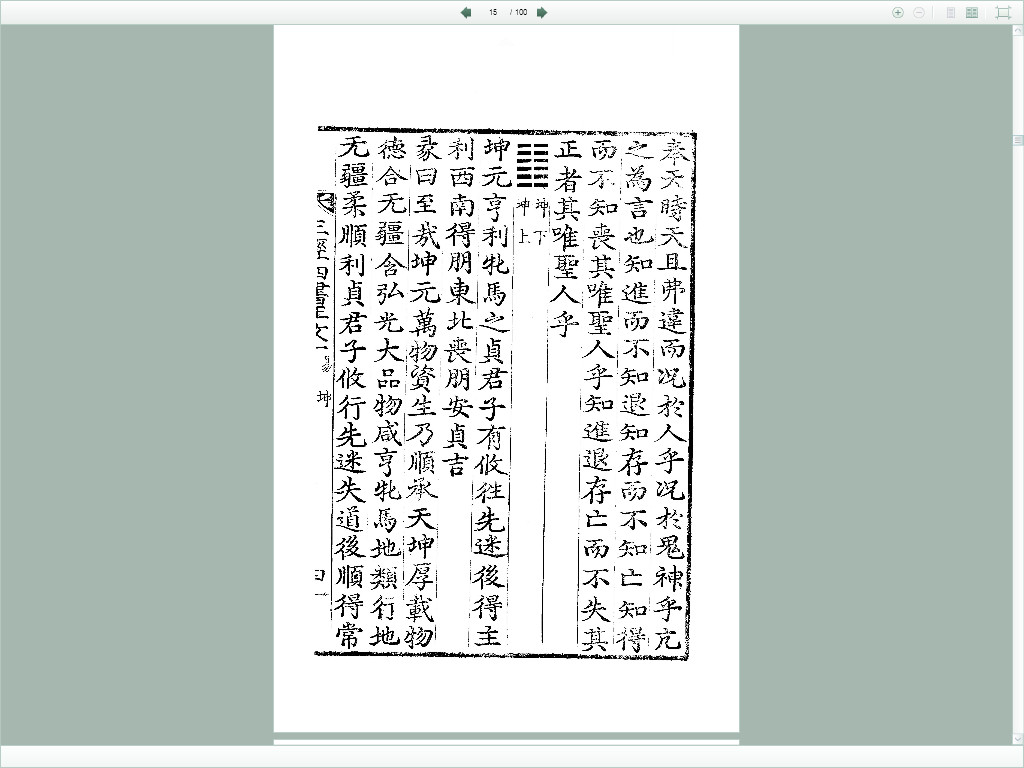 15 / 100
奉天時天且弗違而况於人乎况於鬼神乎亢
之為言也知進而不知退知存而不知亡知得
而不知喪其唯聖人乎知進退存亡而不失其
正者其唯聖人乎
䷁ 坤下
坤上
坤元亨利牝馬之貞君子有攸往先迷後得主
利西南得朋東北喪朋安貞吉
彖曰至哉坤元萬物資生乃順承天坤厚載物
德合无疆含弘光大品物咸亨牝馬地類行地
无疆柔順利貞君子攸行先迷失道後順得常
三經四書正文一 易 坤